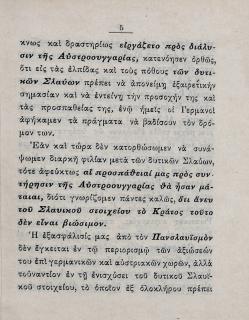 5
κνως καὶ δραστηρίως εἰργάζετο πρὸς διάλυ-
σιν τῆς Αὐστροουγγαρίας, κατενόησεν ὀρθῶς,
ὅτι εἰς τὰς ἐλπίδας καὶ τοὺς πόθους τῶν δυτι-
κῶν Σλαύων πρέπει νὰ ἀπονείμῃ ἐξαιρετικὴν
σημασίαν καὶ νὰ ἐντείνῃ τὴν προσοχήν της καὶ
τὰς προσπαθείας της, ἐνῷ ἡμεῖς οἱ Γερμανοὶ
ἀφήκαμεν τὰ πράγματα νὰ βαδίσουν τὸν δρό-
μον των.
Ἐὰν καὶ τώρα δὲν κατορθώσωμεν νὰ συνά-
ψωμεν διαρκῆ φιλίαν μετὰ τῶν δυτικῶν Σλαύων,
τότε ἀφεύκτως αἱ προσπάθειαί μας πρὸς συν-
τήρησιν τῆς Αὐστροουγγαρίας θὰ ἦσαν μά-
ταιαι, διότι γνωρίζομεν πάντες καλῶς, ὅτι ἄνευ
τοῦ Σλαυικοῦ στοιχείου τὸ Κράτος τοῦτο
δὲν εἶναι βιώσιμον.
Ἡ ἐξασφάλισίς μας ἀπὸ τὸν Πανσλαυϊσμὸν
δὲν ἔγκειται ἐν τῷ περιορισμῷ τῶν ἀξιώσεών
του ἐπὶ γερμανικῶν καὶ αὐστριακῶν χωρῶν, ἀλλὰ
τοὐναντίον ἐν τῇ ἐνισχύσει τοῦ δυτικοῦ Σλαυϊ-
κοῦ στοιχείου, τὸ ὁποῖον ἐξ ὁλοκλήρου πρέπει